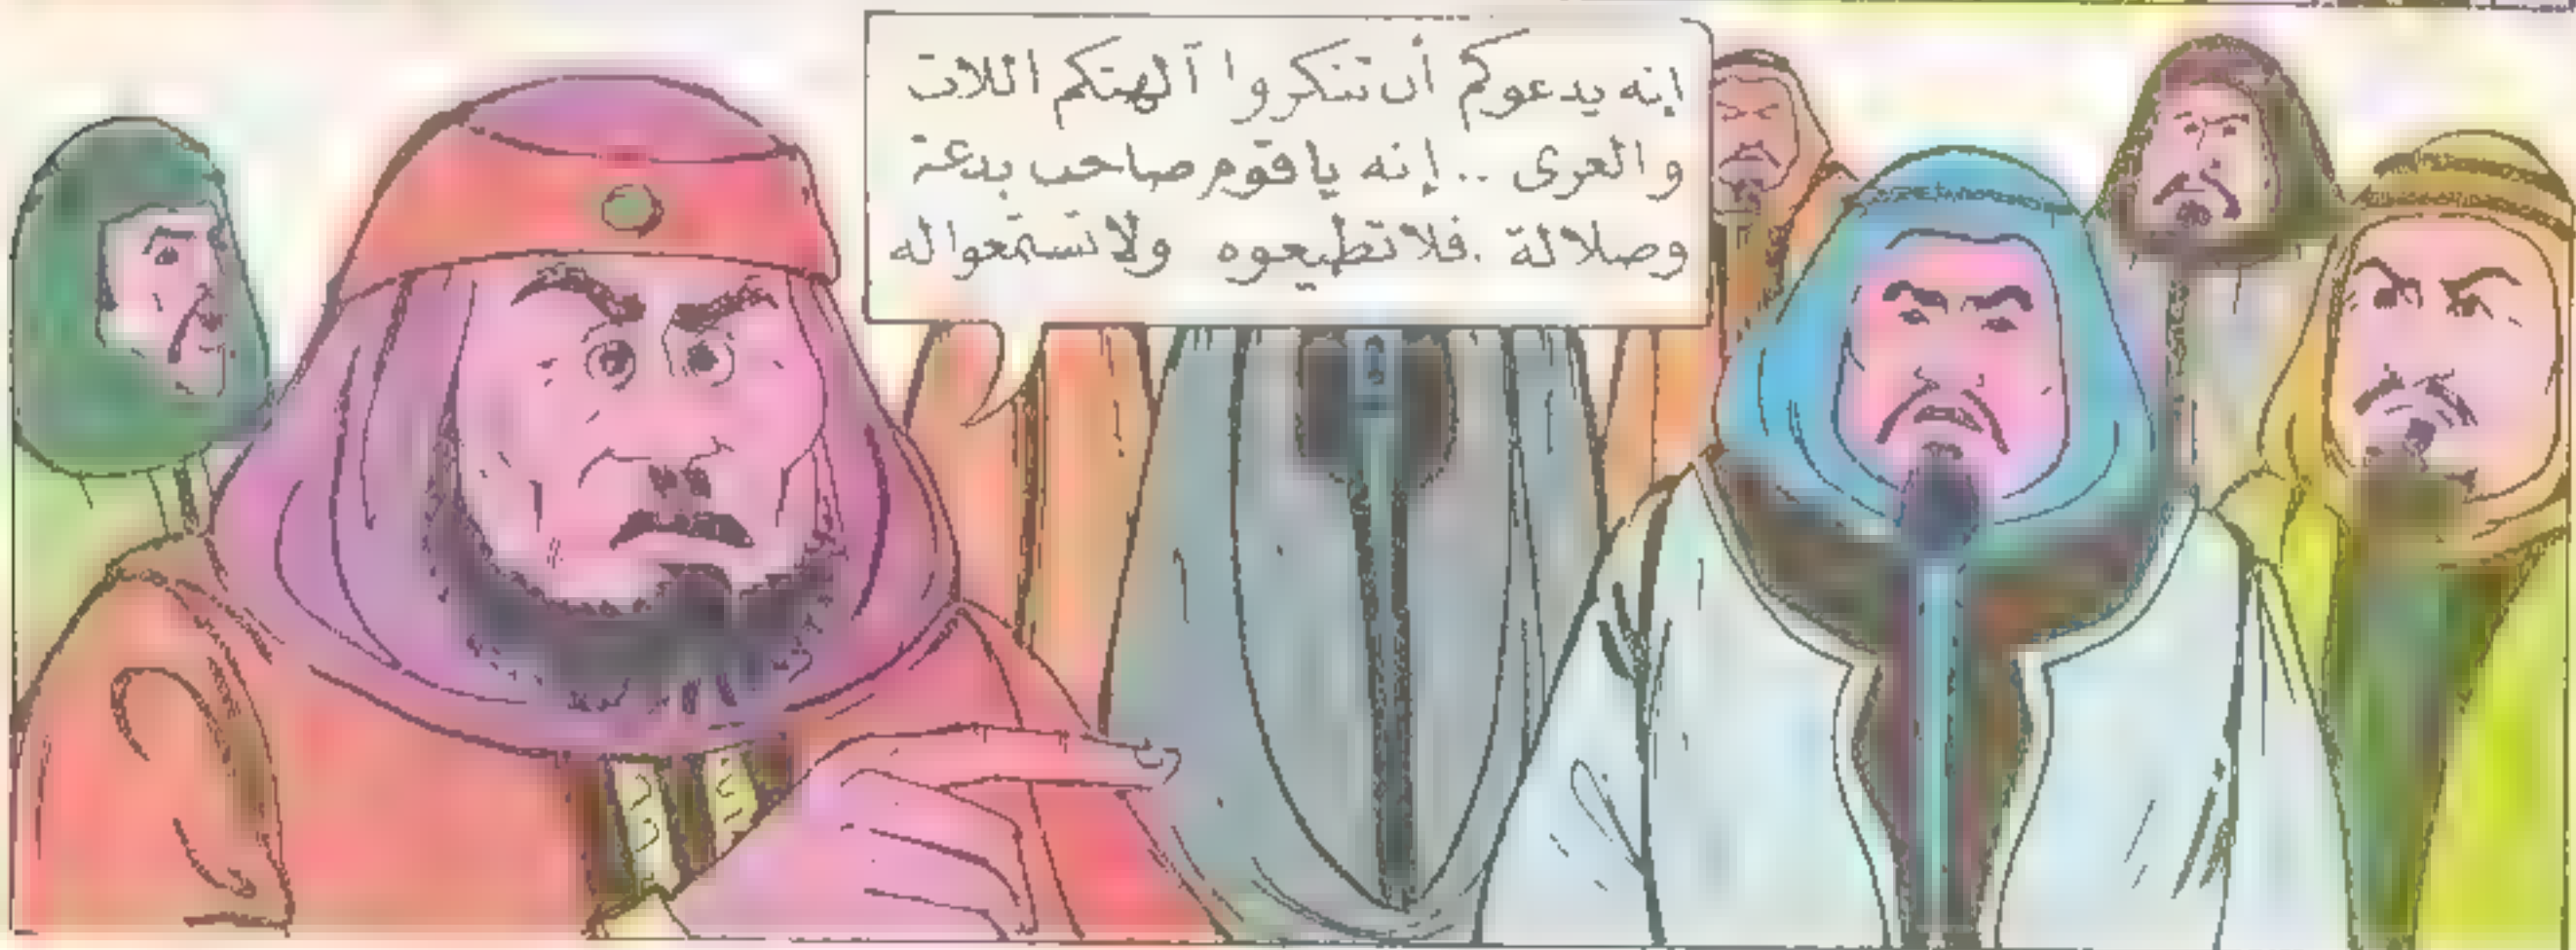 إنه يدعوكم أن تنكروا آلهتكم اللات
والعزى .. إنه يا قوم صاحب بدعة
وضلالة . فلا تطيعوه ولا تستمعوا له